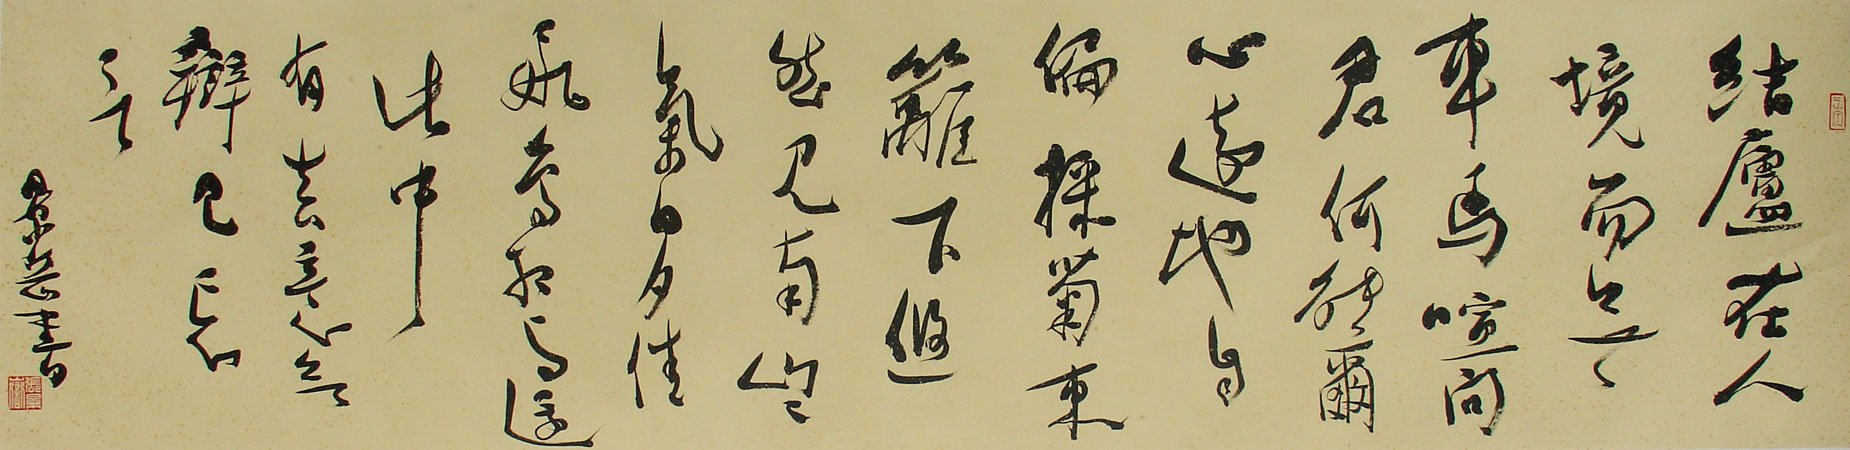 結廬在人
境而無
車馬喧問
君何能爾
心遠地自
偏採菊東
籬下悠
然見南山〻
氣日夕佳
飛鳥相與還
此中
有真意欲
辯已忘
言
景岳書